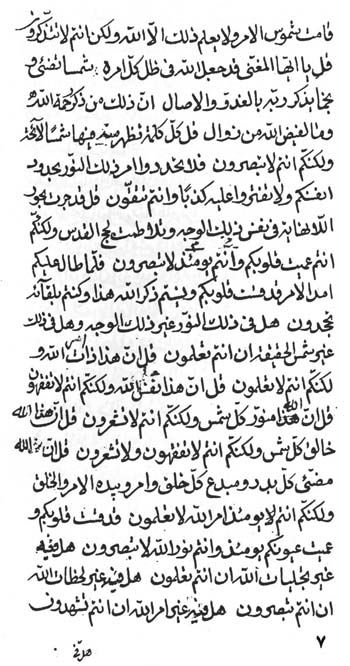 قامت شموس الامر ولا يعلم ذلك الا الله ولكن انتم لا تتذكرون
قل يا ايها المغنى قد جعل الله فى ظل كل امره شمسا تضئى و
نجما يذكر ربه بالغدو والاصال ان ذلك من ذكر رحمة الله و
وما لفيض الله من زوال قل كل كلمة تظهر فيها شمسا لائحة
ولكنكم انتم لا تبصرون فلا تحددوا امر ذلك النور بحدود
انفسكم ولا تفتروا عليه كذبا وانتم تتقون قل قد جرت بحور
اللانهاية فى نفس ذلك الوجه و بلاطمت لجج القدس ولكنكم
انتم عميت قلوبكم وانتم يومئذ لا تبصرون فلما طال عليكم
امد الامر قد قست قلوبكم و نسيتم ذكر الله هذا وكنتم بلقائه
تجحدون هل فى ذلك النور غير ذلك الوجه و هل فى ذلك
غير شمس الحقيقة ان انتم تعلمون قل ان هذا ذات الله و
لكنكم انتم لا تعلمون قل ان هذا نفس الله ولكنكم انتم لا تفقهون
قل ان هذا الله منور كل شمس ولكنكم انتم لا تشعرون قل ان هذا الله
خالق كل شمس ولكنكم انتم لا تفقهون ولا تشعرون قل ان هذا الله
مضئى كل بدر و مبدع كل خلق وامر و بيده الامر والخلق
ولكنكم انتم لا يومئذ امر الله لا تعلمون قد قست قلوبكم و
عميت عيونكم يومئذ وانتم نور الله لا تبصرون هل فيه
غير تجليات الله ان انتم تعلمون هل فيه غير لحظات الله
ان انتم تبصرون هل فيه غير امر الله ان انتم تشهدون
٧
هل فى